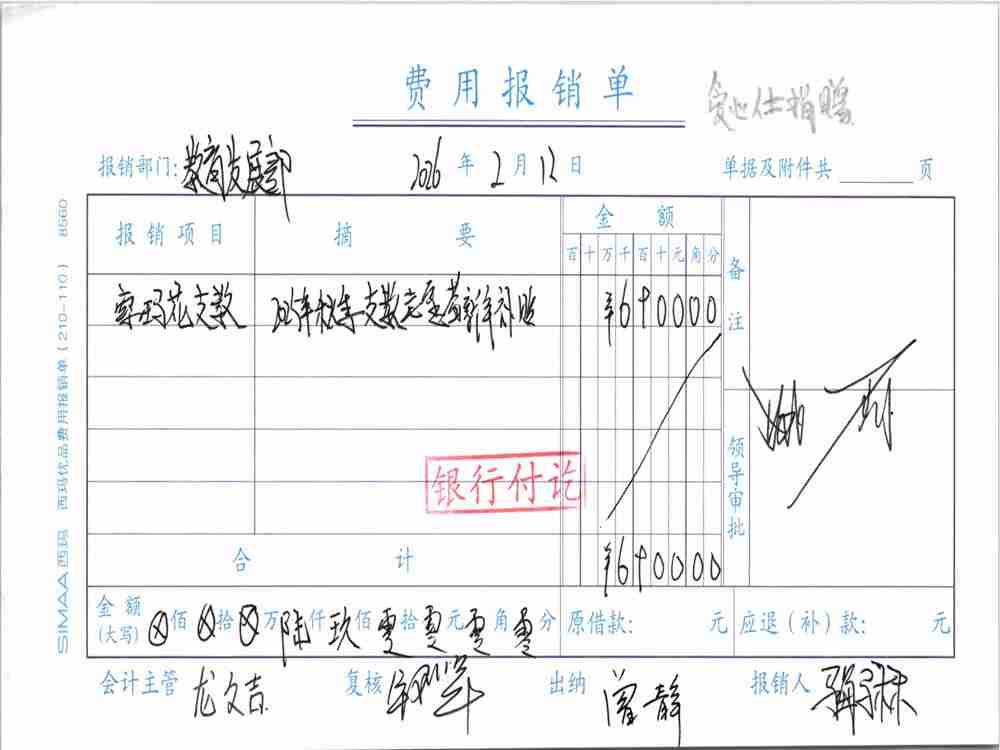 费用报销单
捐赠
报销部门: 教育发展部 2026 年 2 月 12 日 单据及附件共 页
报销项目 摘要 金额 备注
百十万千百十元角分
索玛花支教 秋季支教志愿者 补贴 ¥690000
银行付讫
领导审批
合计 ¥690000
金额(大写) ⊗佰⊗拾⊗万陆仟玖佰零拾零元零角零分 原借款: 元 应退(补)款: 元
会计主管 龙文吉 复核 出纳 曾静 报销人
SIMAA西玛 西玛优品费用报销单(210-110) 8560